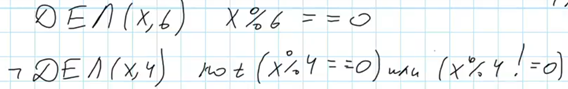 ДЕЛ(x,6) x%6 == 0
¬ДЕЛ(x,4) not (x%4 ==0) или (x%4 != 0)